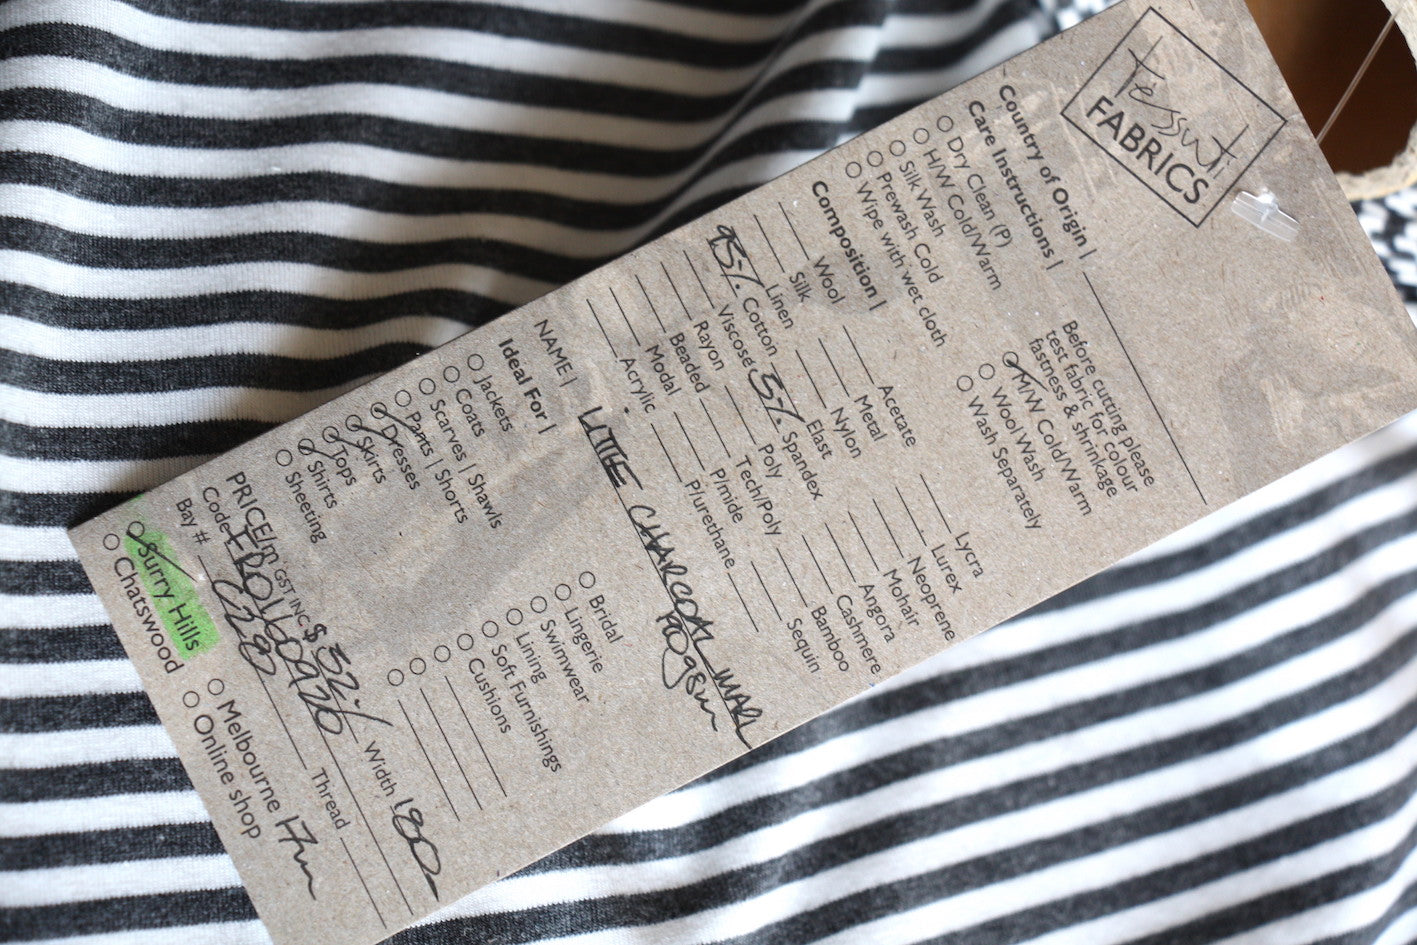 Tessuti
FABRICS
Country of Origin |
Care Instructions |
Dry Clean (P)
H/W Cold/Warm
Silk Wash
Prewash Cold
Wipe with wet cloth
Before cutting please
test fabric for colour
fastness & shrinkage
M/W Cold/Warm
Wool Wash
Wash Separately
Composition |
Wool
Silk
Linen
95%. Cotton
Viscose
Rayon
Beaded
Modal
Acrylic
Acetate
Metal
Nylon
Elast
5%. Spandex
Poly
Tech/Poly
P/mide
P/urethane
Lycra
Lurex
Neoprene
Mohair
Angora
Cashmere
Bamboo
Sequin
NAME | LITTLE CHARCOAL MARL
Ideal For |
Jackets
Coats
Scarves | Shawls
Pants | Shorts
Dresses
Skirts
Tops
Shirts
Sheeting
Bridal
Lingerie
Swimwear
Lining
Soft Furnishings
Cushions
PRICE/m GST INC $ 32. Width 180
Code
Bay # Thread
Surry Hills
Chatswood
Melbourne 17m
Online shop